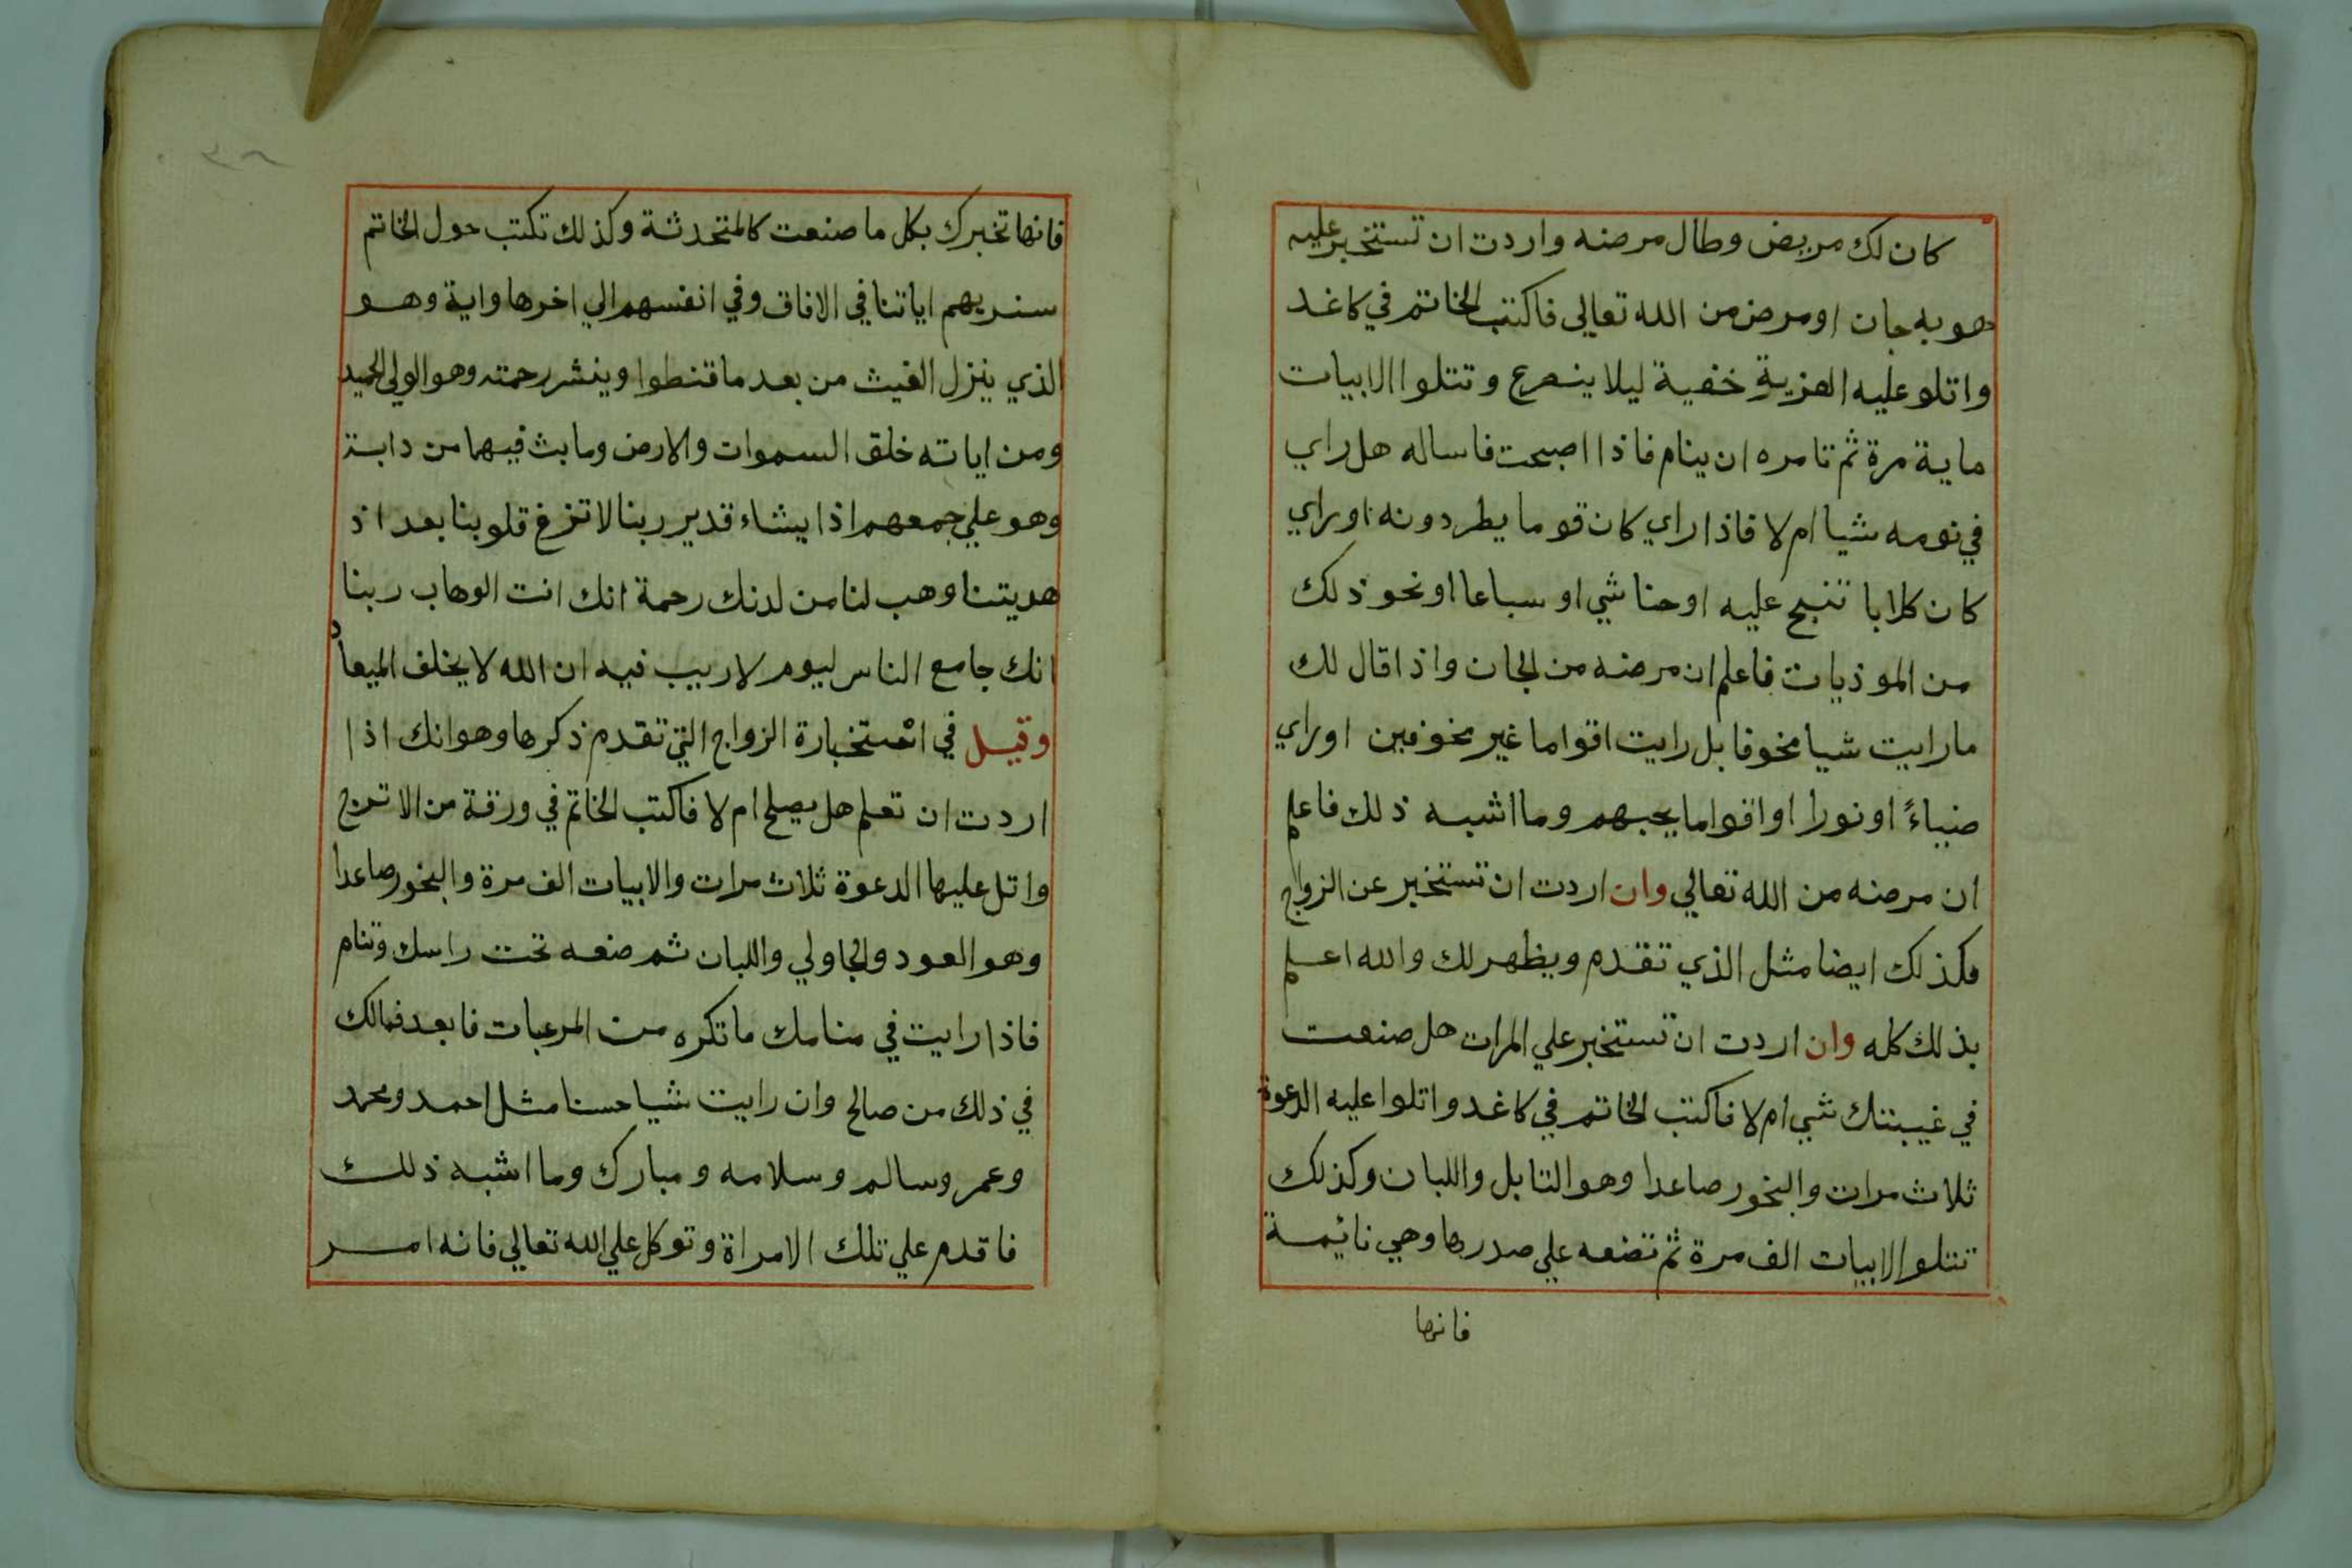 كان لك مريض وطال مرضه واردت ان تستخبر عليه
هو به جان او مرض من الله تعالى فاكتب الخاتم في كاغد
واتلو عليه العزيمة خفية ليلا ينصرع وتتلوا الابيات
ماية مرة ثم تامره ان ينام فاذا اصبحت فاساله هل راي
في نومه شيا ام لا فاذا راي كان قوما يطردونه اوراي
كان كلابا تنبح عليه او حناشي او سباعا او نحو ذلك
من الموذيات فاعلم ان مرضه من الجان واذا قال لك
ما رايت شيا مخوفا بل رايت اقواما غير مخوفين اوراي
ضياءً او نورا او اقواما يحبهم وما اشبه ذلك فاعلم
ان مرضه من الله تعالي وان اردت ان تستخبر عن الزواج
فكذلك ايضا مثل الذي تقدم ويظهر لك والله اعلم
بذلك كله وان اردت ان تستخبر علي المراة هل صنعت
في غيبتك شي ام لا فاكتب الخاتم في كاغد واتلوا عليه الدعوة
ثلاث مرات والبخور صاعدا وهو التابل واللبان وكذلك
تتلو الابيات الف مرة ثم تضعه علي صدرها وهي نائيمة
فانها
فانها تخبرك بكل ما صنعت كالمتحدثة وكذلك تكتب حول الخاتم
سنريهم اياتنا في الافاق وفي انفسهم الي اخرها واية وهو
الذي ينزل الغيث من بعد ما قنطوا وينشر رحمته وهو الولي الحميد
ومن اياته خلق السموات والارض وما بث فيهما من دابة
وهو علي جمعهم اذا يشاء قدير ربنا لا تزغ قلوبنا بعد اذ
هديتنا وهب لنا من لدنك رحمة انك انت الوهاب ربنا
انك جامع الناس ليوم لا ريب فيه ان الله لا يخلف الميعاد
وقيل في استخبارة الزواج التي تقدم ذكرها وهو انك اذا
اردت ان تعلم هل يصلح ام لا فاكتب الخاتم في ورقة من الاترج
واتل عليها الدعوة ثلاث مرات والابيات الف مرة والبخور صاعدا
وهو العود والجاولي واللبان ثم ضعه تحت راسك وتنام
فاذا رايت في منامك ما تكره من المرعبات فابعد فمالك
في ذلك من صالح وان رايت شيا حسنا مثل احمد ومحمد
وعمر وسالم وسلامه ومبارك وما اشبه ذلك
فاقدم علي تلك الامراة وتوكل علي الله تعالي فانه امر